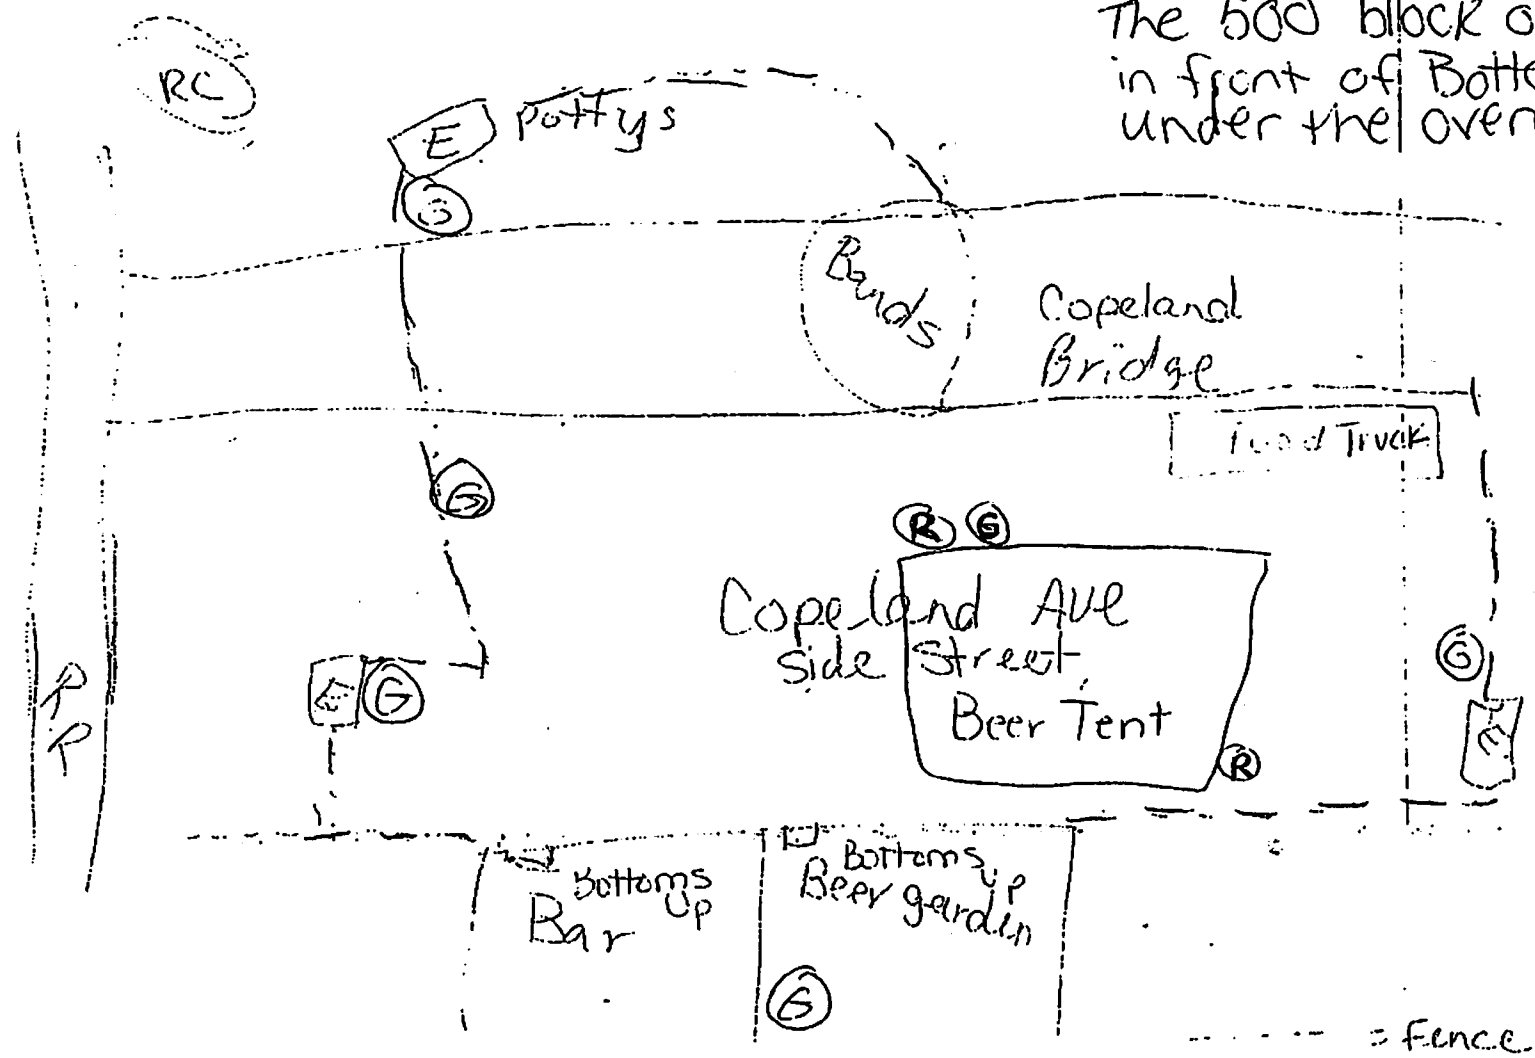 The 500 block o
in front of Botto
under the over
RC
E
Pottys
G
Bands
Copeland
Bridge
Food Truck
G
R G
Copeland Ave
side Street
Beer Tent
G
E
G
E
R
R
R
Bottoms
Up
Bar
Bottoms
Up
Beer garden
G
= Fence